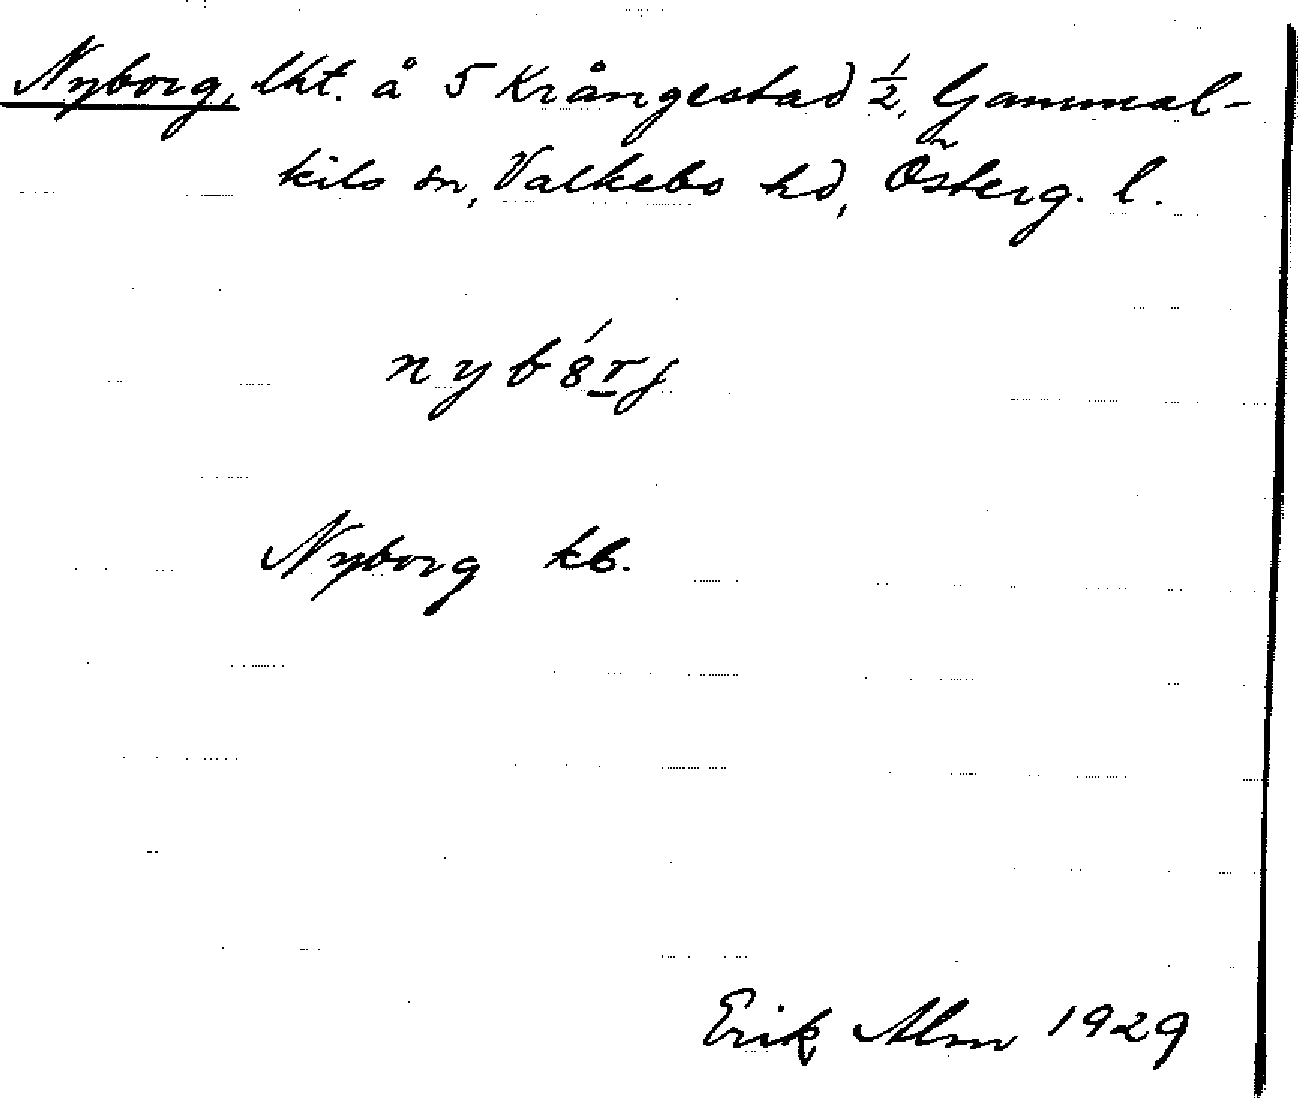 Nyborg, lht. å 5 Krångestad 1/2, Gammal-
kils sn, Valkebo hd, Österg. l.
nyb8́rj
Nyborg kb.
Erik Alm 1929